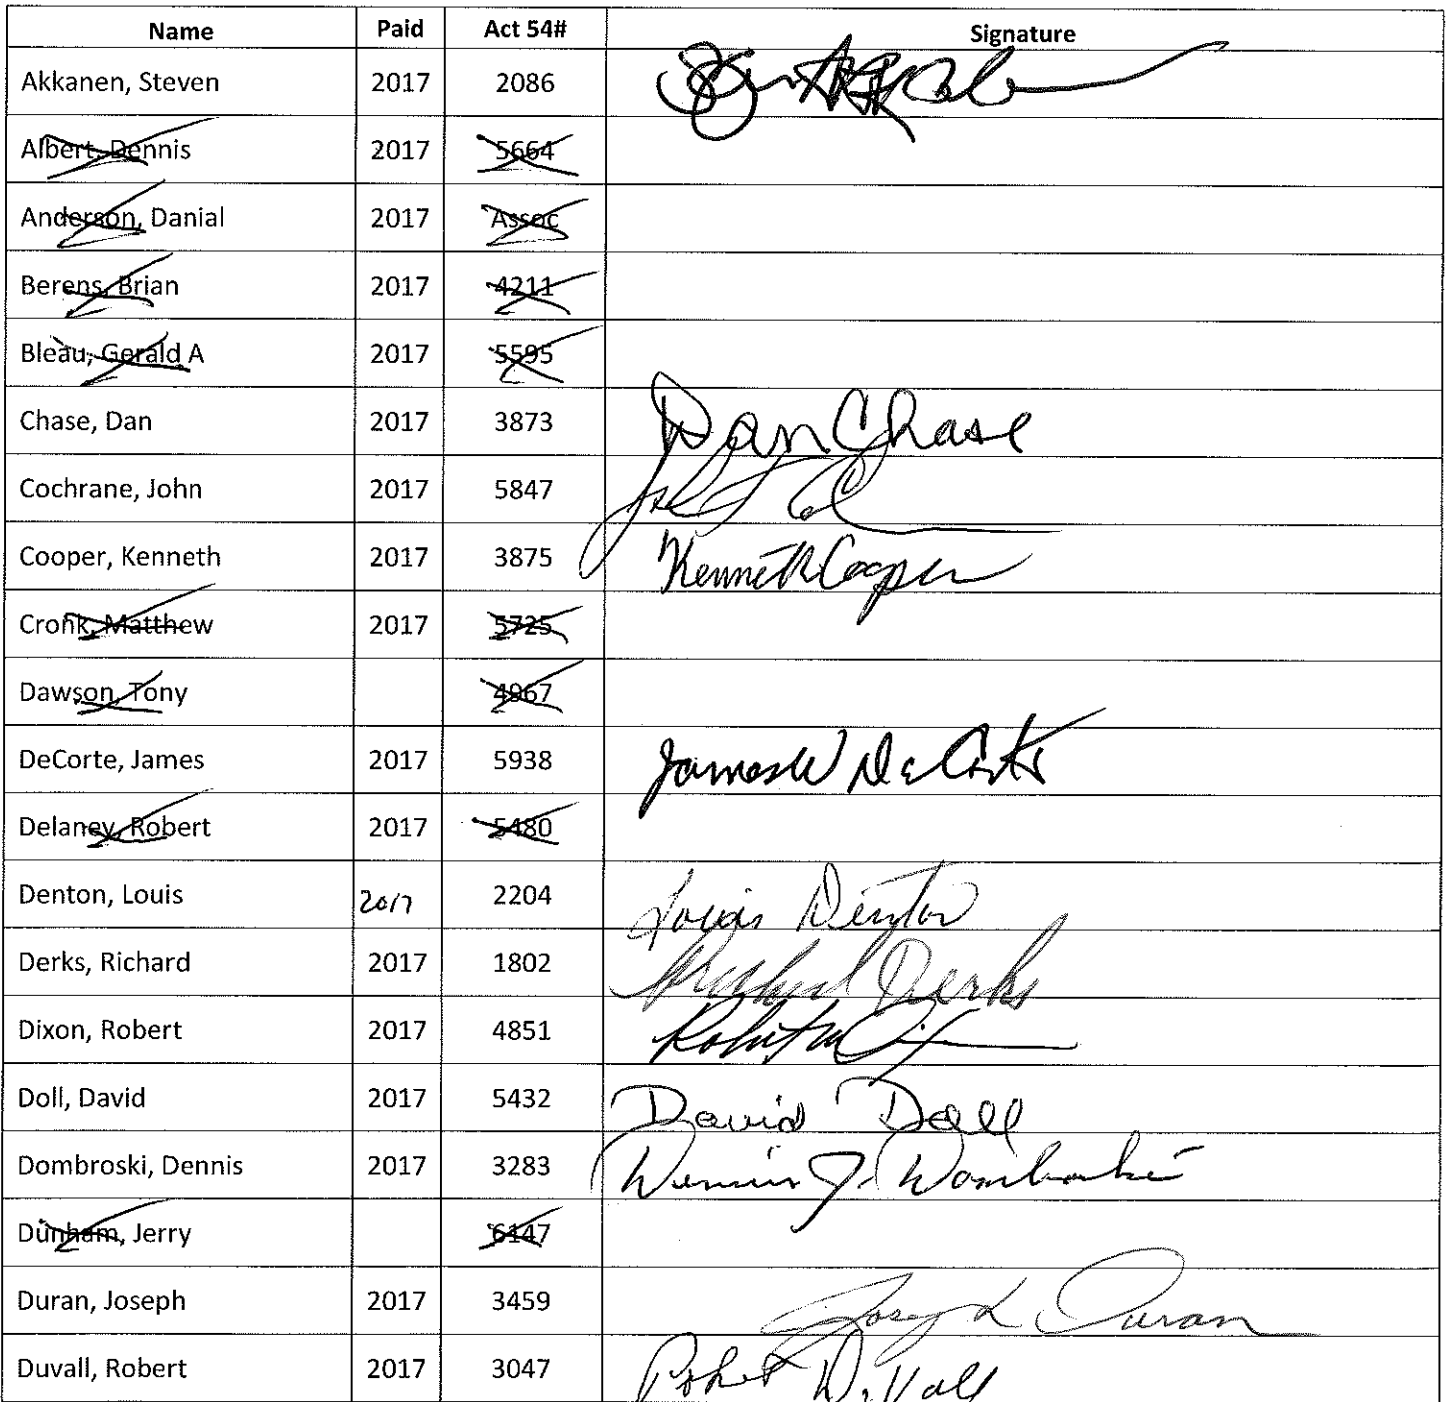 Name Paid Act 54# Signature
Akkanen, Steven 2017 2086
Albert, Dennis 2017 5664
Anderson, Danial 2017 Assoc
Berens, Brian 2017 4211
Bleau, Gerald A 2017 5595
Chase, Dan 2017 3873 Dan Chase
Cochrane, John 2017 5847
Cooper, Kenneth 2017 3875 Kenneth Cooper
Cronk, Matthew 2017 5725
Dawson, Tony 4967
DeCorte, James 2017 5938 James W DeCorte
Delaney, Robert 2017 5480
Denton, Louis 2017 2204 Louis Denton
Derks, Richard 2017 1802 Richard Derks
Dixon, Robert 2017 4851
Doll, David 2017 5432 David Doll
Dombroski, Dennis 2017 3283 Dennis J. Dombroski
Dunham, Jerry 6147
Duran, Joseph 2017 3459 Joseph L Duran
Duvall, Robert 2017 3047 Robert DuVall